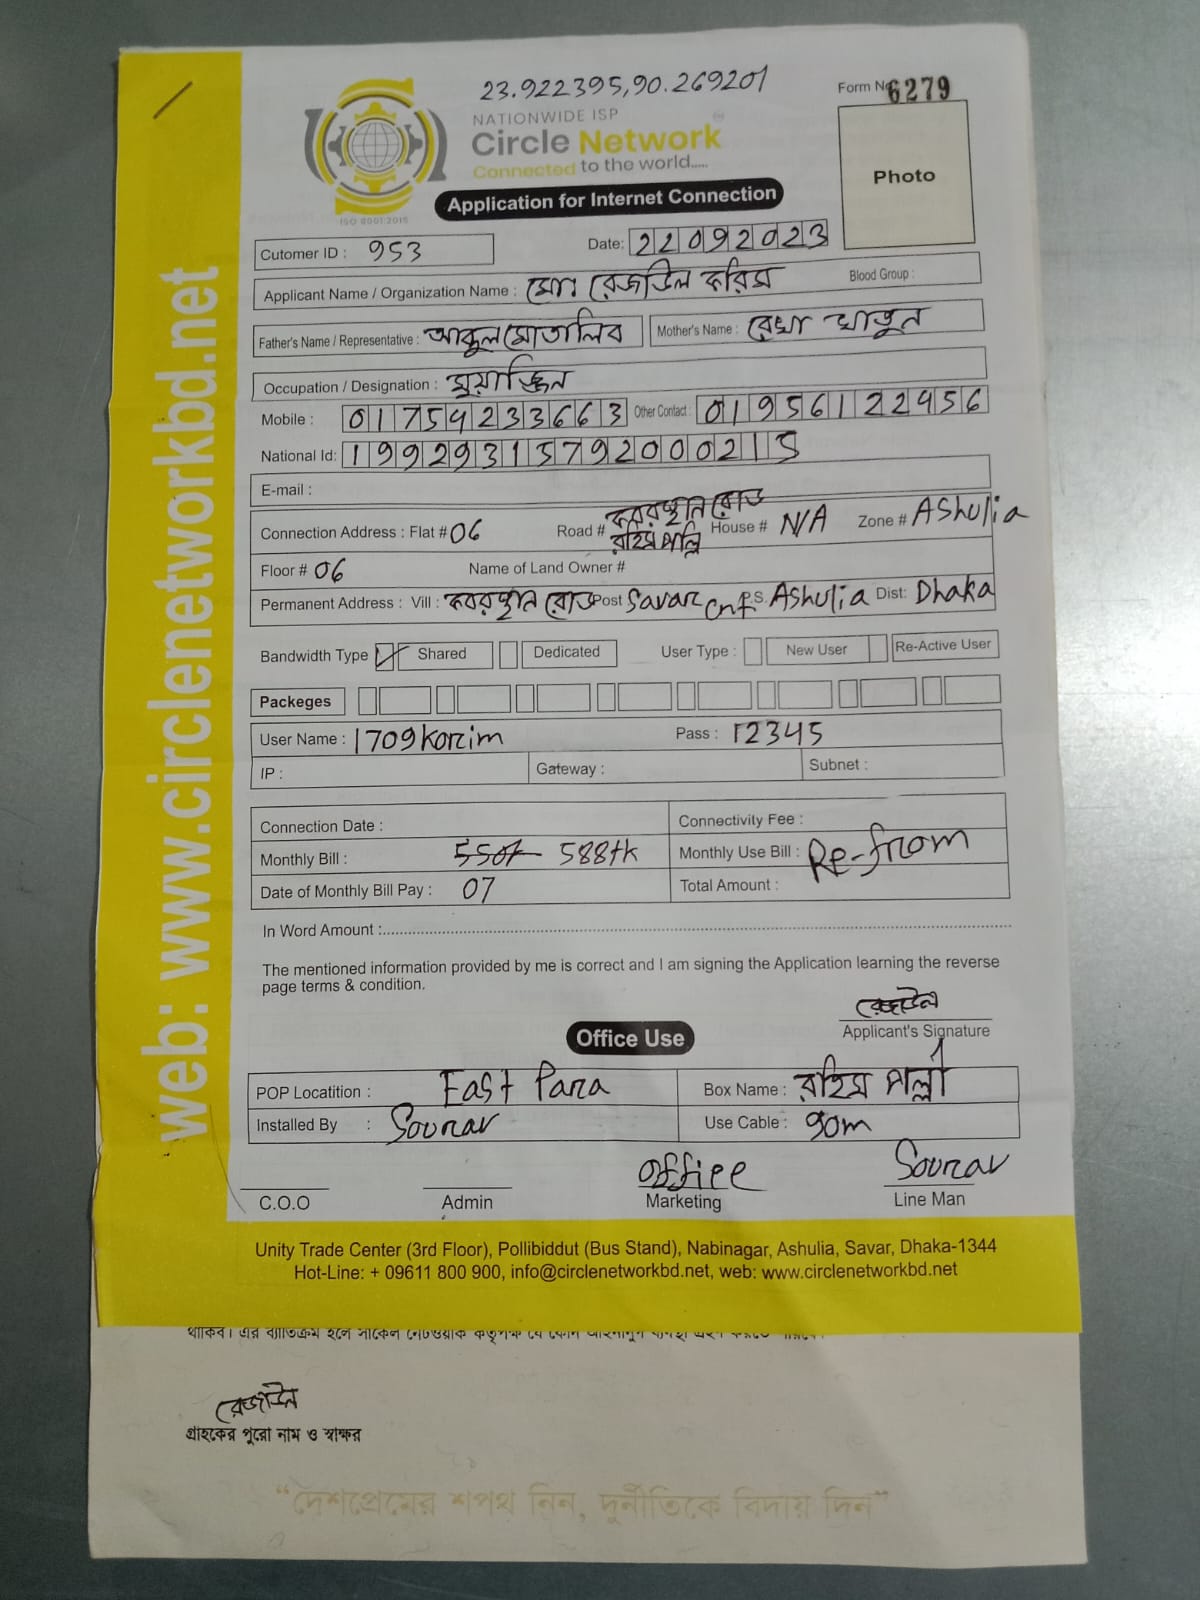 23.922395,90.269201
Form No 6279
NATIONWIDE ISP
Circle Network
Connected to the world.....
ISO 9001:2015
Photo
Application for Internet Connection
Cutomer ID : 953 Date: 22092023
Applicant Name / Organization Name : মোঃ রেজাউল করিম Blood Group :
Father's Name / Representative : আব্দুল মোতালিব Mother's Name : রেখা খাতুন
Occupation / Designation : মুয়াজ্জিন
Mobile : 01754233663 Other Contact : 01956122456
National Id: 19929315792000215
E-mail :
Connection Address : Flat # 06 Road # কবরস্থান রোড রহিম পল্লি House # N/A Zone # Ashulia
Floor # 06 Name of Land Owner #
Permanent Address : Vill : কবরস্থান রোড Post Savar Cnt. P.S. Ashulia Dist: Dhaka
Bandwidth Type Shared Dedicated User Type : New User Re-Active User
Packeges
User Name : 1709Korim Pass : 12345
IP : Gateway : Subnet :
Connection Date : Connectivity Fee :
Monthly Bill : 588tk Monthly Use Bill : Re-from
Date of Monthly Bill Pay : 07 Total Amount :
In Word Amount :
The mentioned information provided by me is correct and I am signing the Application learning the reverse
page terms & condition.
রেজাউল
Applicant's Signature
Office Use
POP Locatition : East Para Box Name : রহিম পল্লী
Installed By : Sourav Use Cable : 90m
Office Sourav
C.O.O Admin Marketing Line Man
Unity Trade Center (3rd Floor), Pollibiddut (Bus Stand), Nabinagar, Ashulia, Savar, Dhaka-1344
Hot-Line: + 09611 800 900, info@circlenetworkbd.net, web: www.circlenetworkbd.net
web: www.circlenetworkbd.net
রেজাউল
গ্রাহকের পুরো নাম ও স্বাক্ষর
"দেশপ্রেমের শপথ নিন, দুর্নীতিকে বিদায় দিন"